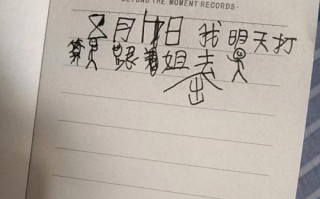 BEYOND THE MOMENT RECORDS·
8月17日 我明天打
算跟着姐去
出